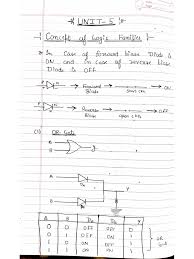 UNIT-5
Concept of Logic Families
In Case of forward bias Diode is
ON and in case of reverse bias
Diode is OFF.
P N → Forward Bias → ON
P N → Reverse Bias → OFF
(1) OR-Gate
A
B
Y
A
B
Y
A B D₁ D₂ Y
0 0 OFF OFF 0
0 1 OFF ON 1
1 0 ON OFF 1
1 1 ON ON 1
OR